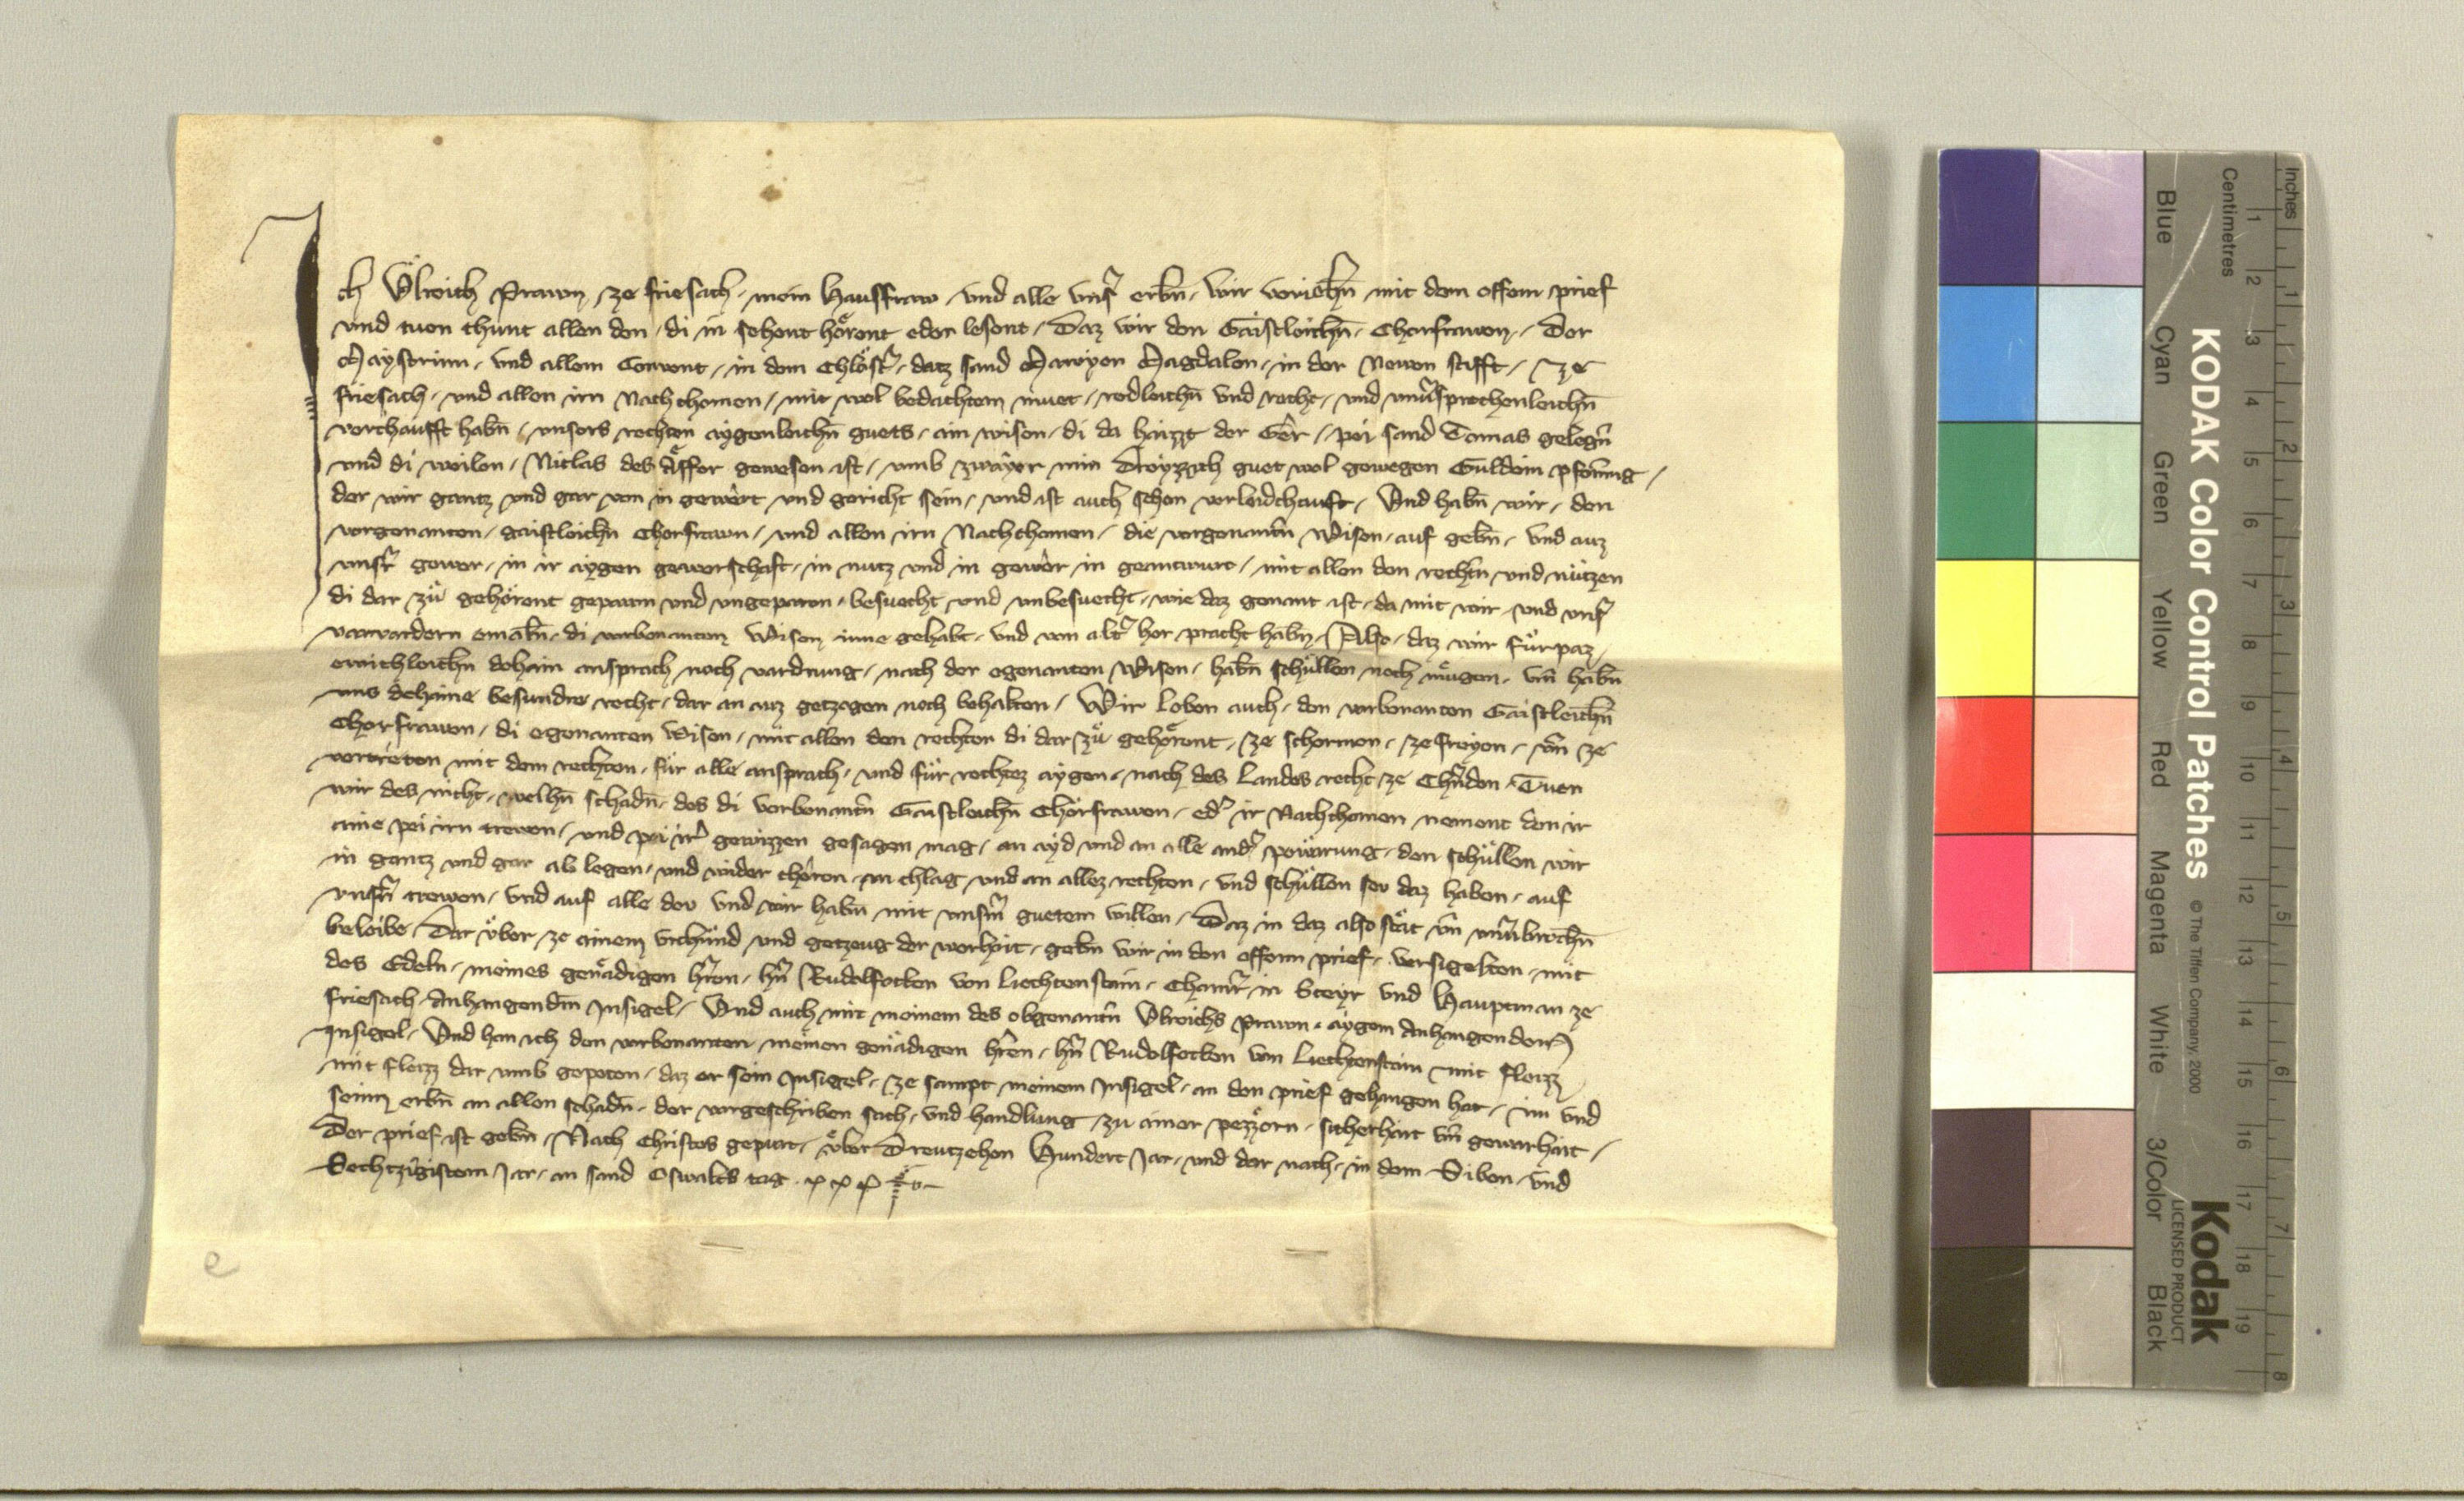 Ich Ůlreich Prawn ze friesach mein Hausfraw und alle unsˀ erbn̄ wir veriehn̄ mit dem offem prief
und tuen chunt allen den di in sehent hoͤrent oder lesent Daz wir den Gaistleichn̄ Chorfrawen Der
Maystrinn und allem Convent in dem Chloͤstˀ datz sand Mareyen Magdalen in der Newen stifft ze
friesach und allen irn Nachchomen mit wol bedachtem muet redleichn̄ und recht und unuˀsprechenleichn̄
verchaufft habn̄ unsers rechten aygenleichn̄ guets ain wisen di da haizzt der Gêr pei sand Tomas gelegn̄
und di weilen Niclas des Aͤffer gewesen ist umb zwayer min Dreyzzich guet wol gewegen Guldein pfenning
der wir gantz und gar von in gewert und gericht sein und ist auch schon verleidchauft Und habn̄ wir den
vorgenanten gaistleichn̄ Chorfrawn und allen irn Nachchomen die vorgenantn̄ Wisen auf gebn̄ und auz
unsˀr gewer in ir aygen gewerschaft in nutz und in gewer in geantwurt mit allen den rechtn̄ und nutzen
di dar zuͤ gehoͤrent gepawn und ungepawn besuecht und unbesuecht wie daz genant ist da mit wir und unsˀ
varvardern emaln̄ di vorbenanten Wisen inne gehabt und von altˀ her pracht habn̄ Also daz wir fuͤrpaz
ewichleichn̄ dehain ansprach noch vardrung nach der egenanten Wisen habn̄ schuͤllen noch muͤgen un̄ habn̄
uns dehaine besundre recht dar an auz getzogen noch behalten Wir loben auch den vorbenanten Gaistleichn̄
Chorfrawen di egenanten Wisen mit allen den rechten di dar zuͤ gehoͤrent ze schermen ze freyen un̄ ze
vertreten mit dem rechten fuͤr alle ansprach und fuͤr rechtez aygen nach des Landes recht ze Chernden Tuen
wir des nicht welhn̄ schadn̄ des di vorbenantn̄ Gaistleichn̄ Chorfrawen edˀ ir Nachchomen nement den ir
aine pei irn trewen und pei irˀ gewizzen gesagen mag an ayd und an alle andˀ pewarung den schuͤllen wir
in gantz und gar ab legen und wider cheren an chlag und an allez rechten und schuͤllen seu daz haben auf
unsˀn trewen und auf alle deu und wir habn̄ mit unsˀm guetem willen Daz in daz also staͤt un̄ unuˀbrochn̄
beleibe Dar uͤber ze ainem urchuͤnd und getzeug der warhait gebn̄ wir in den offenn prief versigelten mit
des Edeln meines genaͤdigen hˀren hˀn Rudolfotten von Liechtenstain Chamrˀ in Steyr und Hauptman ze
friesach Anhangendm̄ Insigel Und auch mit meinem des obgenantn̄ Ulreichs Prawn aygem Anhangendem
Insigel Und han ich den vorbenanten meinen genaͤdigen hˀren hˀn Rudolfotten von Liechtenstain mit fleizz
mit fleizz dar umb gepeten daz er sein Insigel ze sampt meinem Insigel an den prief gehangen hat im und
seinn erbn̄ an allen schadn̄ der vorgeschriben sach und handlung zu ainer pezzern sicherhait un̄ gewarhait
Der prief ist gebn̄ Nach Christes gepurt uͤber Dreutzehen Hundert Jar und dar nach in dem Siben und
Sechtzigistem Jar an sand Oswalts tag
e
KODAK Color Control Patches © The Tiffen Company, 2000
Kodak
LICENSED PRODUCT
Inches 1 2 3 4 5 6 7 8
Centimetres 1 2 3 4 5 6 7 8 9 10 11 12 13 14 15 16 17 18 19
Blue Cyan Green Yellow Red Magenta White 3/Color Black